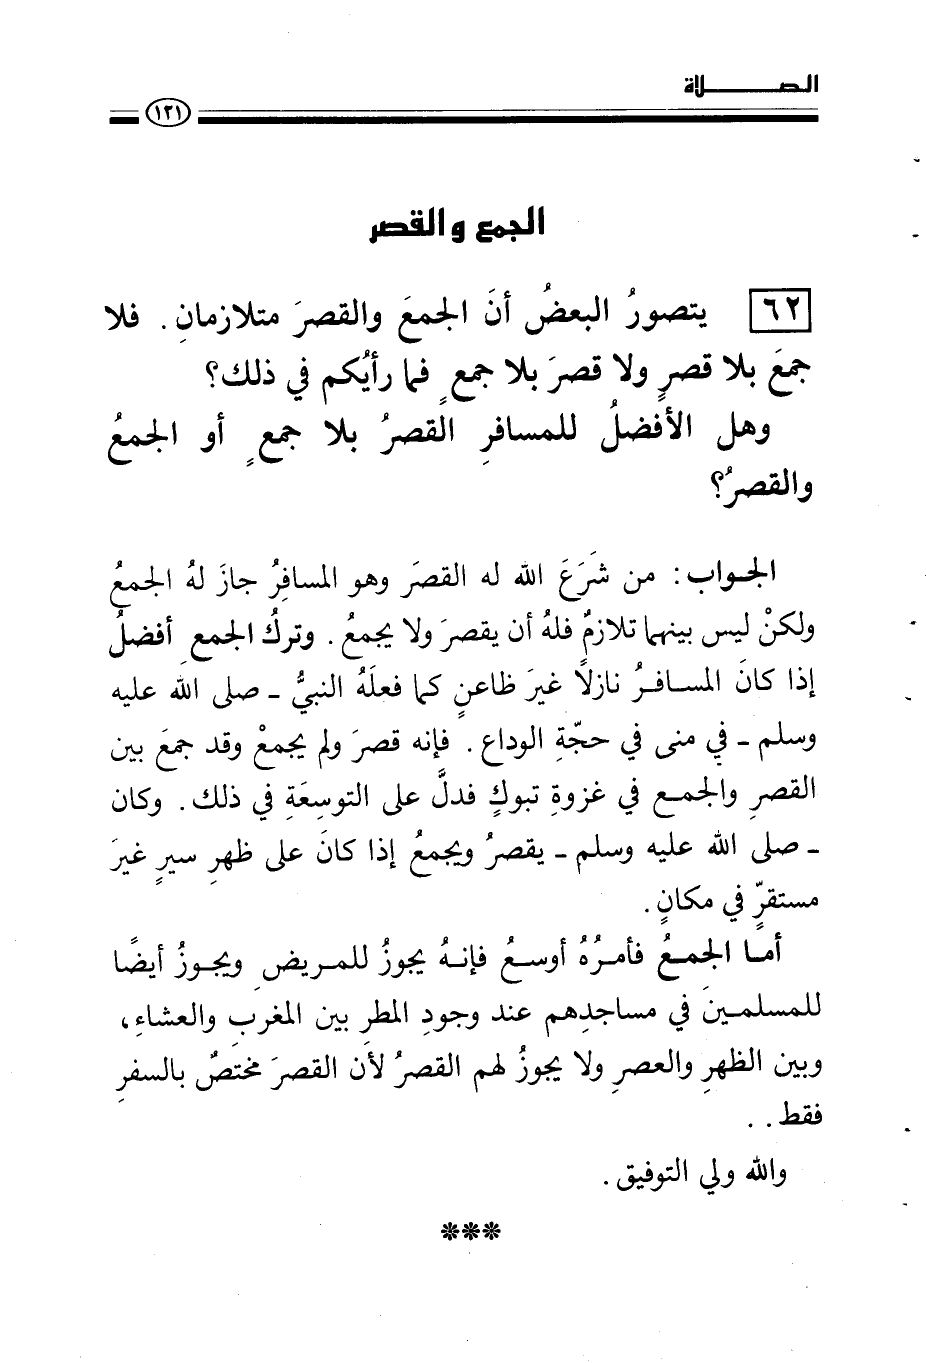 الصلاة
١٢١
الجمع والقصر
٦٢ يتصورُ البعضُ أنَ الجمعَ والقصرَ متلازمانِ. فلا
جمعَ بلا قصرٍ ولا قصرَ بلا جمعٍ فما رأيُكم في ذلك؟
وهل الأفضلُ للمسافرِ القصرُ بلا جمعٍ أو الجمعُ
والقصرُ؟
الجواب: من شرَعَ الله له القصرَ وهو المسافرُ جازَ لهُ الجمعُ
ولكنْ ليس بينهما تلازمٌ فلهُ أن يقصرَ ولا يجمعُ. وتركُ الجمعِ أفضلُ
إذا كانَ المسافرُ نازلًا غيرَ ظاعنٍ كما فعلَهُ النبيُّ ـ صلى الله عليه
وسلم ـ في منى في حجّةِ الوداعِ. فإنه قصرَ ولم يجمعْ وقد جمعَ بين
القصرِ والجمعِ في غزوةِ تبوكٍ فدلَّ على التوسِعَةِ في ذلك. وكان
ـ صلى الله عليه وسلم ـ يقصرُ ويجمعُ إذا كانَ على ظهرِ سيرٍ غيرَ
مستقرٍّ في مكانٍ.
أما الجمعُ فأمرُهُ أوسعُ فإنهُ يجوزُ للمريضِ ويجوزُ أيضًا
للمسلمينَ في مساجدِهم عند وجودِ المطرِ بين المغربِ والعشاءِ،
وبين الظهرِ والعصرِ ولا يجوزُ لهم القصرُ لأن القصرَ مختصٌ بالسفرِ
فقط..
والله ولي التوفيق.
***